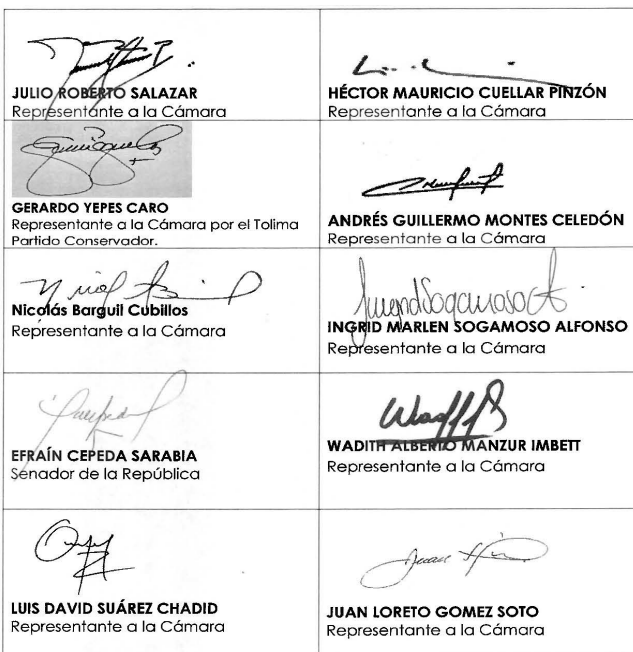 JULIO ROBERTO SALAZAR
Representante a la Cámara
HÉCTOR MAURICIO CUELLAR PINZÓN
Representante a la Cámara
GERARDO YEPES CARO
Representante a la Cámara por el Tolima
Partido Conservador.
ANDRÉS GUILLERMO MONTES CELEDÓN
Representante a la Cámara
Nicolás Barguil Cubillos
Representante a la Cámara
INGRID MARLEN SOGAMOSO ALFONSO
Representante a la Cámara
EFRAÍN CEPEDA SARABIA
Senador de la República
WADITH ALBERTO MANZUR IMBETT
Representante a la Cámara
LUIS DAVID SUÁREZ CHADID
Representante a la Cámara
JUAN LORETO GOMEZ SOTO
Representante a la Cámara